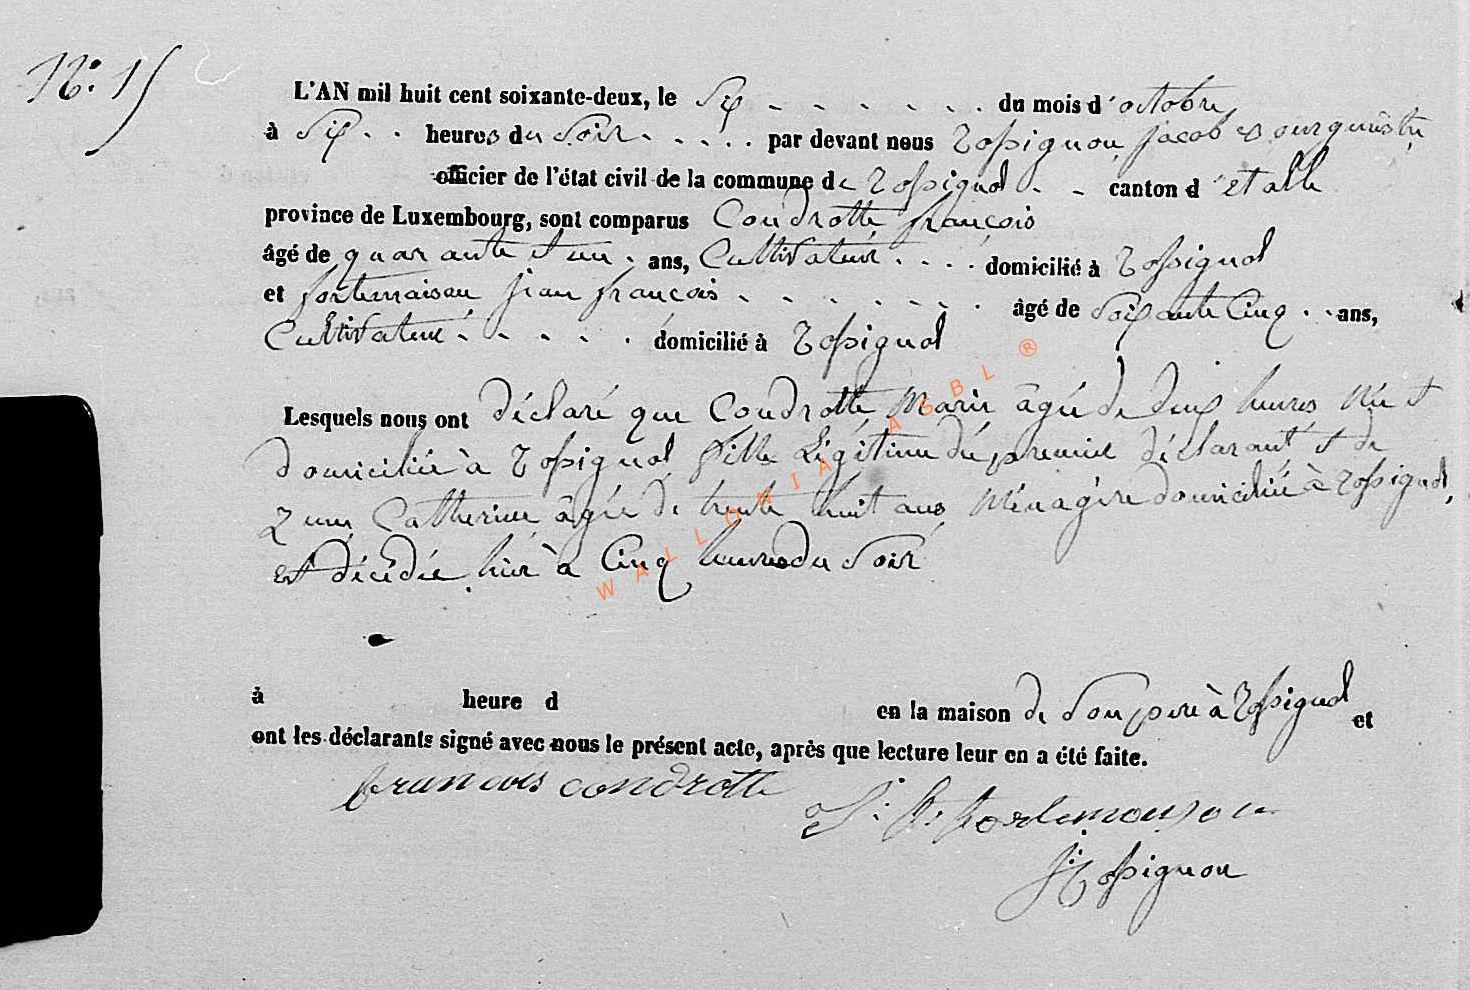 N°: 15
L'AN mil huit cent soixante-deux, le Six - - - - - - - du mois d'octobre
à Six - - heures du Soir - - - - par devant nous Rossignon, jacob Bourgmestre,
officier de l'état civil de la commune de Rossignol - - canton d'Etalle
province de Luxembourg, sont comparus Condrotte françois
âgé de quarante et un - ans, Cultivateur - - - - domicilié à Rossignol
et fortemaison jean françois - - - - - - - âgé de Soixante Cinq - - ans,
Cultivateur - - - - - domicilié à Rossignol
Lesquels nous ont déclaré que Condrotte Marie âgée de deux heures Née et
domiciliée à Rossignol fille Légitime du premier déclarant et de
Catherine âgée de trente huit ans Ménagère domiciliée à Rossignol,
est décédée hier à Cinq heures du Soir
à heure d en la maison de Son père à Rossignol et
ont les déclarants signé avec nous le présent acte, après que lecture leur en a été faite.
francois condrotte
J. f. fortemaison
J. Rossignon
WALLONIA ASBL ®